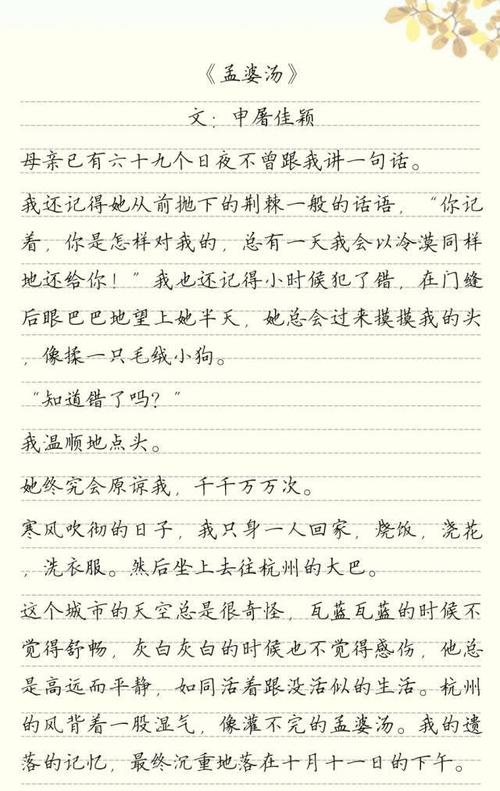 《孟婆汤》
文：申屠佳颖
母亲已有六十九个日夜不曾跟我讲一句话。
我还记得她从前抛下的荆棘一般的话语，“你记
着，你是怎样对我的，总有一天我会以冷漠同样
地还给你！”我也还记得小时候犯了错，在门缝
后眼巴巴地望上她半天，她总会过来摸摸我的头
，像揉一只毛绒小狗。
“知道错了吗？”
我温顺地点头。
她终究会原谅我，千千万万次。
寒风吹彻的日子，我只身一人回家，烧饭，浇花
，洗衣服。然后坐上去往杭州的大巴。
这个城市的天空总是很奇怪，瓦蓝瓦蓝的时候不
觉得舒畅，灰白灰白的时候也不觉得感伤，他总
是高远而平静，如同活着跟没活似的生活。杭州
的风背着一股湿气，像灌不完的孟婆汤。我的遗
落的记忆，最终沉重地落在十月十一日的下午。